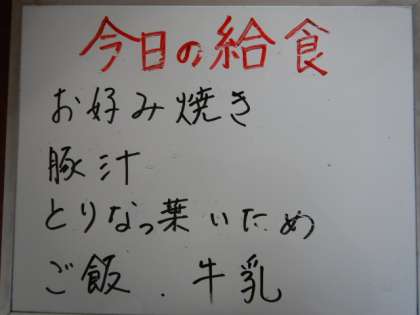 今日の給食
お好み焼き
豚汁
とりなっ葉いため
ご飯.牛乳